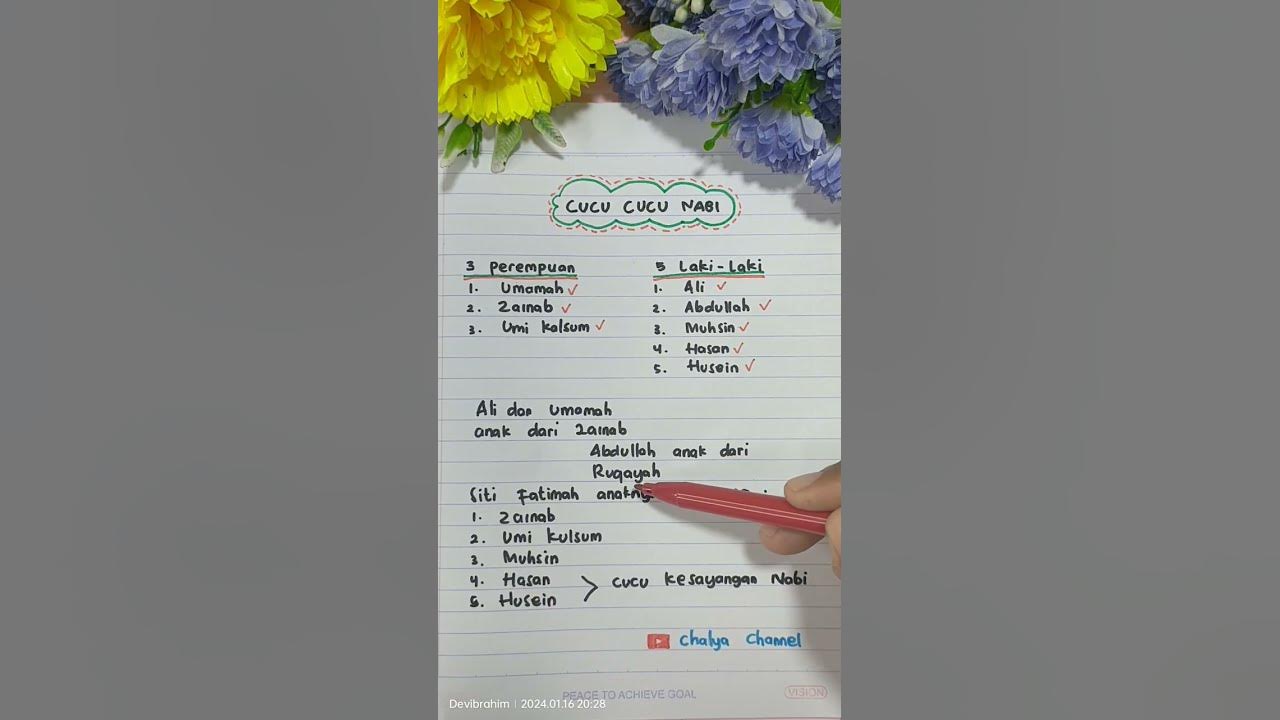 CUCU CUCU NABI
3 Perempuan
1. Umamah ✓
2. Zainab ✓
3. Umi kalsum ✓
5 Laki-Laki
1. Ali ✓
2. Abdullah ✓
3. Muhsin ✓
4. Hasan ✓
5. Husein ✓
Ali dan Umamah
anak dari Zainab
Abdullah anak dari
Ruqayah
Siti Fatimah
1. Zainab
2. Umi kulsum
3. Muhsin
4. Hasan
5. Husein
> cucu kesayangan Nabi
Chalya Channel
PEACE TO ACHIEVE GOAL
VISION
Devibrahim | 2024.01.16 20:28